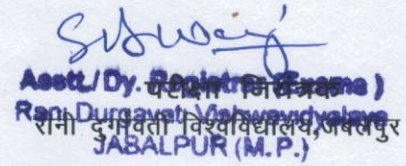 Asstt./Dy. Registrar (Exams)
परीक्षा नियंत्रक
Rani Durgavati Vishwavidyalaya
रानी दुर्गावती विश्वविद्यालय,जबलपुर
JABALPUR (M.P.)